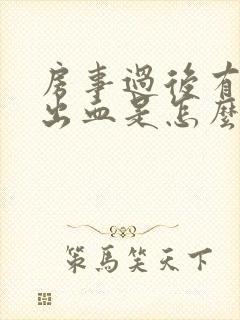 房事過後有
出血是怎麼
策馬笑天下